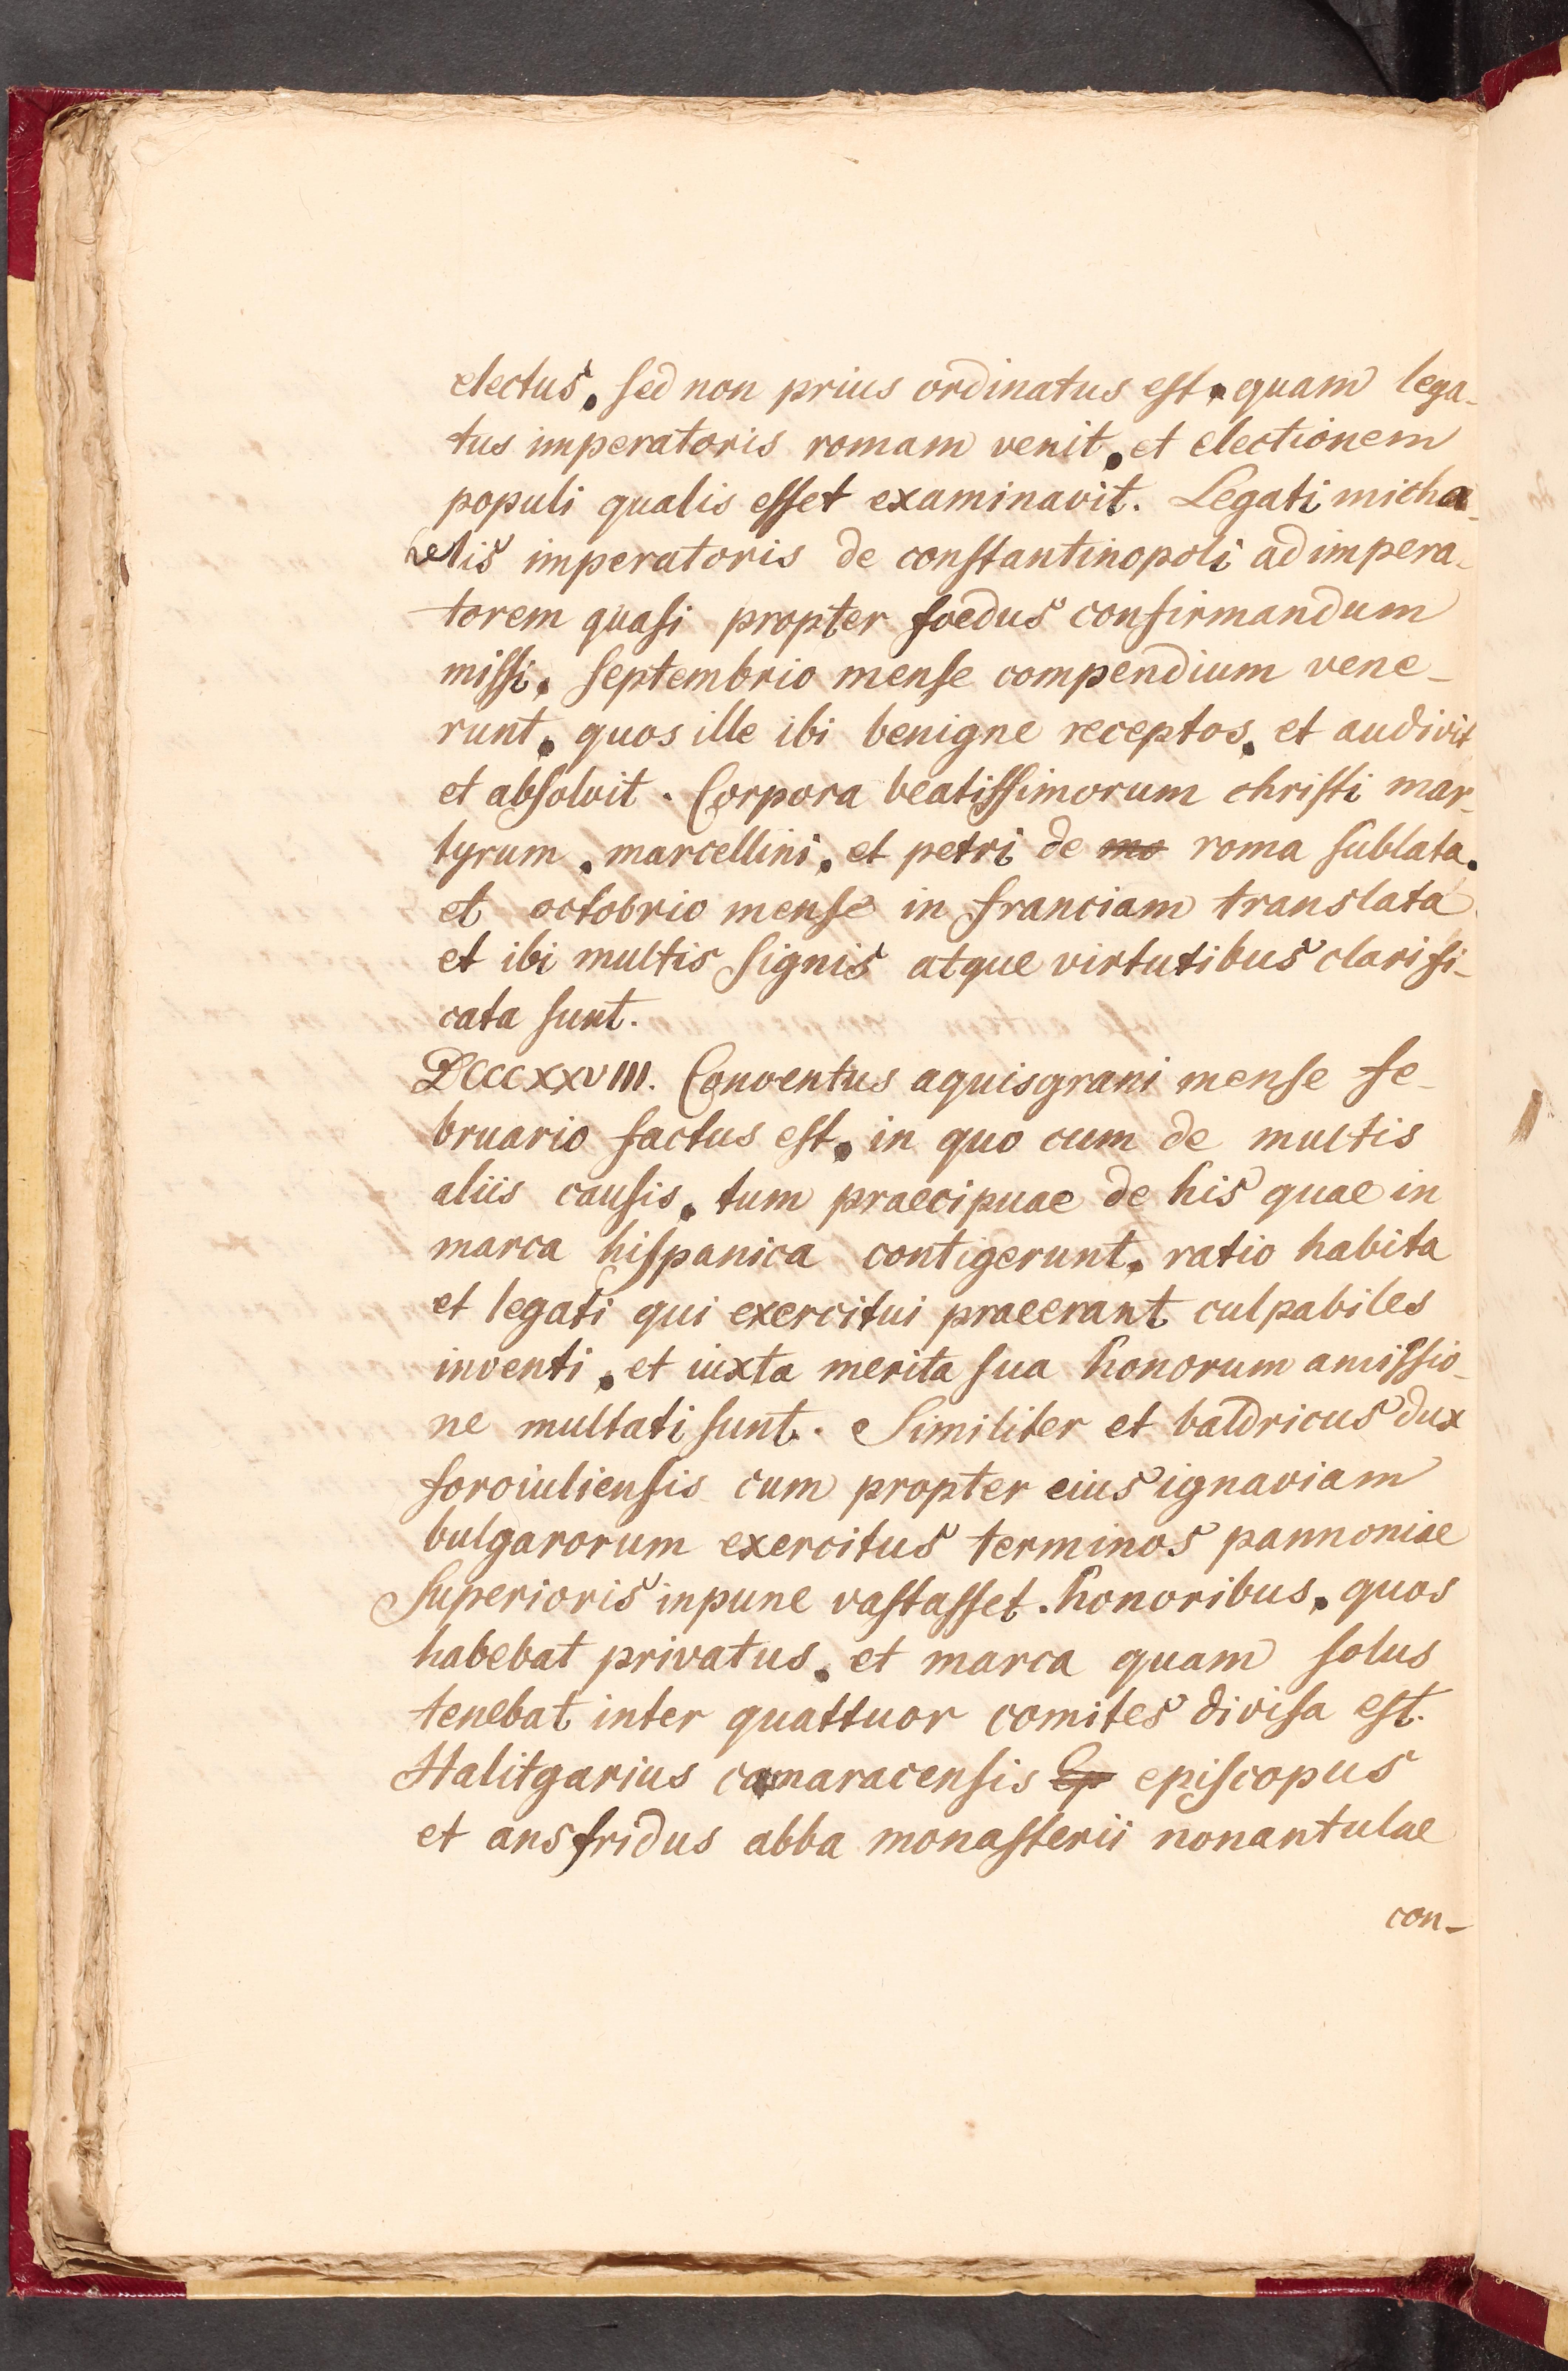 electus. sed non prius ordinatus est. quam lega-
tus imperatoris romam venit. et electionem
populi qualis esset examinavit. Legati micha-
elis imperatoris de constantinopoli ad impera-
torem quasi propter foedus confirmandum
missi. septembrio mense compendium vene-
runt. quos ille ibi benigne receptos. et audivit
et absolvit. Corpora beatissimorum christi mar-
tyrum. marcellini. et petri de mo roma sublata.
et octobrio mense in franciam translata
et ibi multis signis atque virtutibus clarifi-
cata sunt.
DCCCXXVIII. Conventus aquisgrani mense fe-
bruario factus est. in quo cum de multis
aliis causis. tum praecipuae de his quae in
marca hispanica contigerunt. ratio habita
et legati qui exercitui praeerant culpabiles
inventi. et iuxta merita sua honorum amissio-
ne multati sunt. Similiter et baldricus dux
foroiuliensis cum propter eius ignaviam
bulgarorum exercitus terminos pannoniae
superioris inpune vastasset. honoribus. quos
habebat privatus. et marca quam solus
tenebat inter quattuor comites divisa est.
Halitgarius camaracensis Ep episcopus
et ansfridus abba monasterii nonantulae
con-